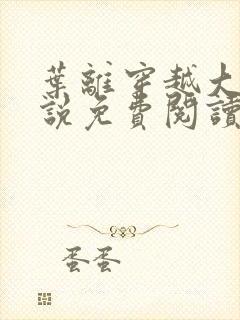 葉離穿越大
說免費閱讀
蛋蛋